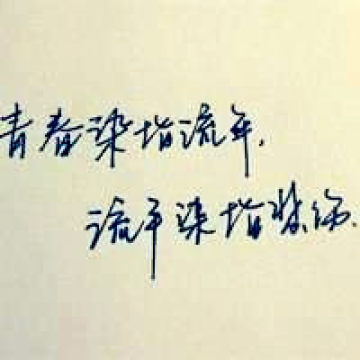 青春染指流年.
流年染指